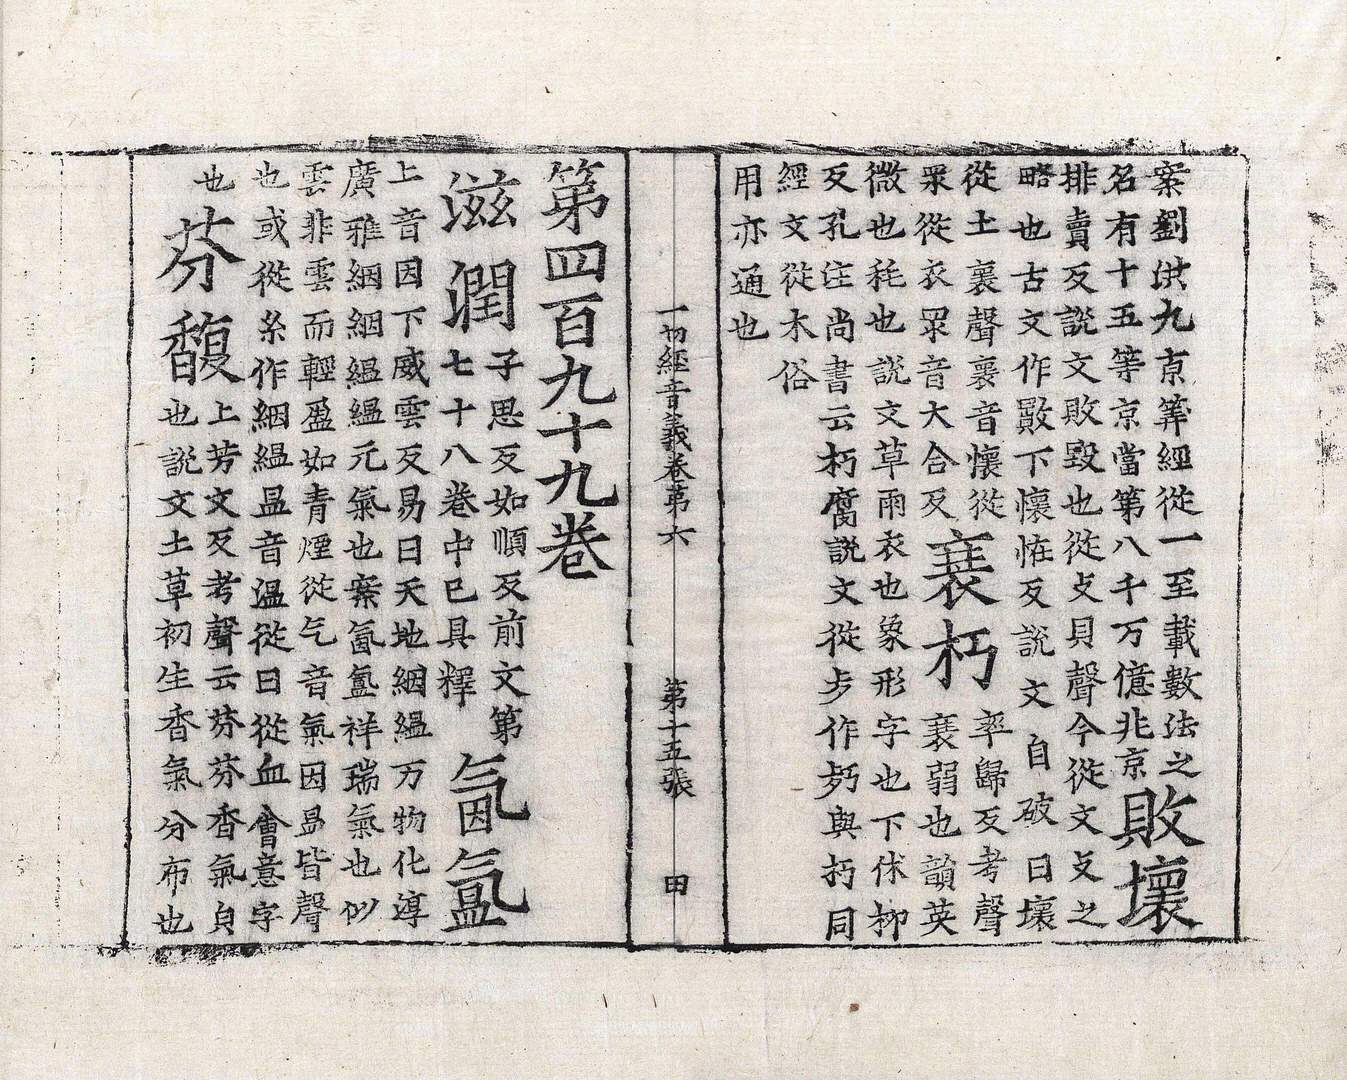 案劉洪九京筭經從一至載數法之
名有十五等京當第八千万億兆京
敗壞
排賣反說文敗毀也從攴貝聲今從文攴之
略也古文作㪏下懷恠反說文自破曰壞
從土褱聲褱音懷從
眔從衣眔音大合反
衰朽
率歸反考聲
衰弱也韻英
微也耗也說文草雨衣也象形字也下休柳
反孔注尚書云朽腐說文從歹作𣦶與朽同
經文從木俗
用亦通也
一切經音義卷第六 第十五張 田
第四百九十九卷
滋潤
子思反如順反前文第
七十八卷中已具釋
氤氳
上音因下威雲反易曰天地絪縕万物化淳
廣雅絪絪縕縕元氣也案氤氳祥瑞氣也似
雲非雲而輕盈如青煙從气音氣因昷皆聲
也或從糸作絪縕昷音溫從日從血會意字
也
芬馥
上芳文反考聲云芬芬香氣皃
也說文土草初生香氣分布也